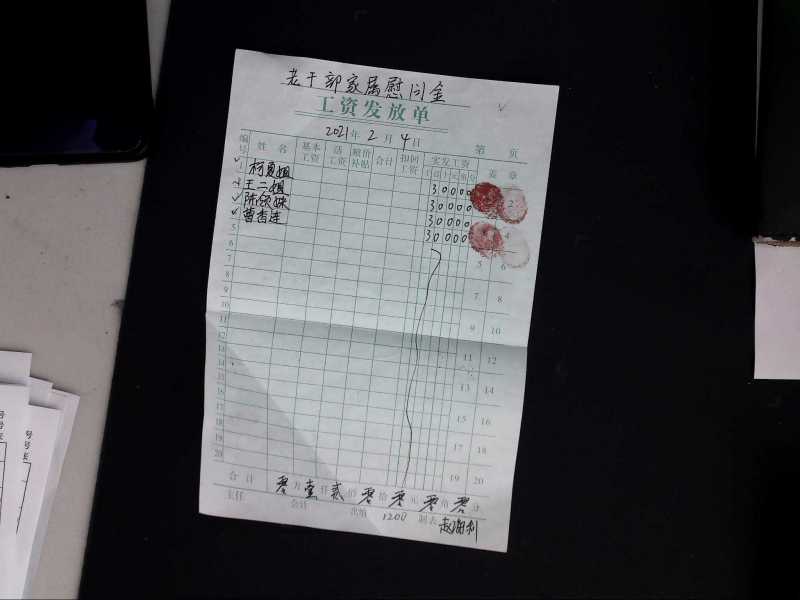 老干部家属慰问金
工资发放单
2021年 2月 4日 第 页
编号 姓名 基本工资 活工资 粮价补贴 合计 扣回工资 实发工资 盖章
千 百 十 元 角 分
1 柯夏姐 30000
2 王二姐 30000 2
3 陈欣妹 30000
4 曹杏连 30000 4
5 5 6
6
7 7 8
8
9 9 10
10
11 11 12
12
13 13 14
14
15 15 16
16
17 17 18
18
19 19 20
20
合计 零万壹仟贰佰零拾零元零角零分
主任 会计 出纳 1200 制表
号
号
账
号
号
账